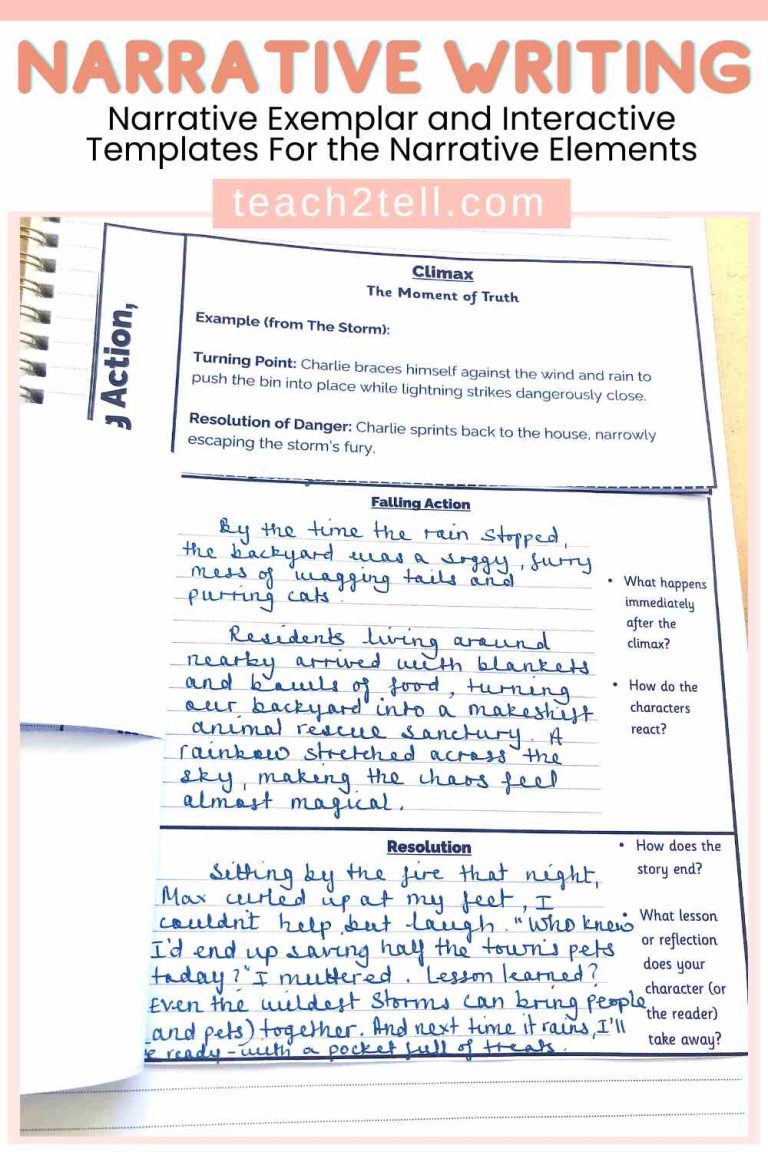 NARRATIVE WRITING
Narrative Exemplar and Interactive
Templates For the Narrative Elements
teach2tell.com
Action,
Climax
The Moment of Truth
Example (from The Storm):
Turning Point: Charlie braces himself against the wind and rain to
push the bin into place while lightning strikes dangerously close.
Resolution of Danger: Charlie sprints back to the house, narrowly
escaping the storm's fury.
Falling Action
By the time the rain stopped,
the backyard was a soggy, furry
mess of wagging tails and
purring cats.
Residents living around
nearby arrived with blankets
and bowls of food, turning
our backyard into a makeshift
animal rescue sanctury. A
rainbow stretched across the
sky, making the chaos feel
almost magical.
• What happens
immediately
after the
climax?
• How do the
characters
react?
Resolution
Sitting by the fire that night,
Max curled up at my feet, I
couldn't help but laugh. "Who knew
I'd end up saving half the town's pets
today?" I muttered. Lesson learned?
Even the wildest storms can bring people
(and pets) together. And next time it rains, I'll
ready – with a pocket full of treats.
• How does the
story end?
• What lesson
or reflection
does your
character (or
the reader)
take away?